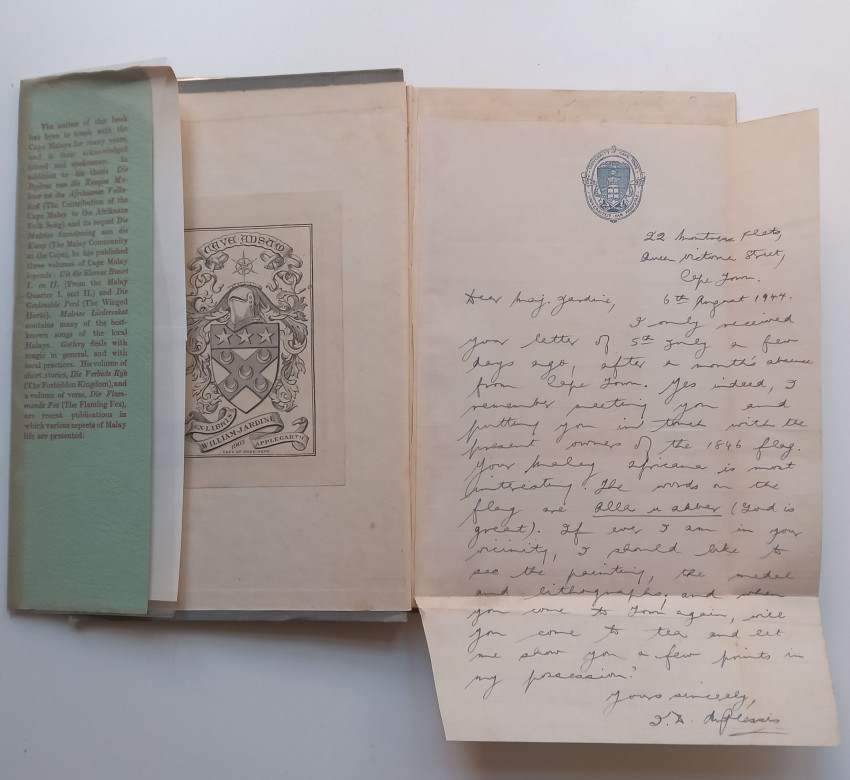 The author of this book
has been in touch with the
Cape Malays for many years,
and is their acknowledged
friend and spokesman. In
addition to his thesis Die
Bydrae van die Kaapse Ma-
leier tot die Afrikaanse Volks-
lied (The Contribution of the
Cape Malay to the Afrikaans
Folk Song) and its sequel Die
Maleise Samelewing aan die
Kaap (The Malay Community
at the Cape), he has published
three volumes of Cape Malay
legends: Uit die Slamse Buurt
I. en II. (From the Malay
Quarter I. and II.) and Die
Goedaarde Perd (The Winged
Horse). Maleise Liederskat
contains many of the best-
known songs of the local
Malays. Goëlery deals with
magic in general, and with
local practices. His volume of
short stories, Die Verbode Ryk
(The Forbidden Kingdom), and
a volume of verse, Die Vlam-
mende Fez (The Flaming Fez),
are recent publications in
which various aspects of Malay
life are presented.
CAVE ADSUM
EX LIBRIS
WILLIAM JARDINE
1903
APPLEGARTH
CAPE OF GOOD HOPE
UNIVERSITY OF CAPE TOWN
22 Montrose Flats,
Queen Victoria Street,
Cape Town.
Dear Maj. Jardine, 6th August 1944.
I only received
your letter of 5th July a few
days ago, after a month's absence
from Cape Town. Yes indeed, I
remember meeting you and
putting you in touch with the
present owners of the 1846 flag.
Your Malay Africana is most
interesting. The words on the
flag are Alla u akber (God is
great). If ever I am in your
vicinity, I should like to
see the painting, the medal
and lithographs; and when
you come to Town again, will
you come to tea and let
me show you a few prints in
my possession?
Yours sincerely,
I. D. du Plessis